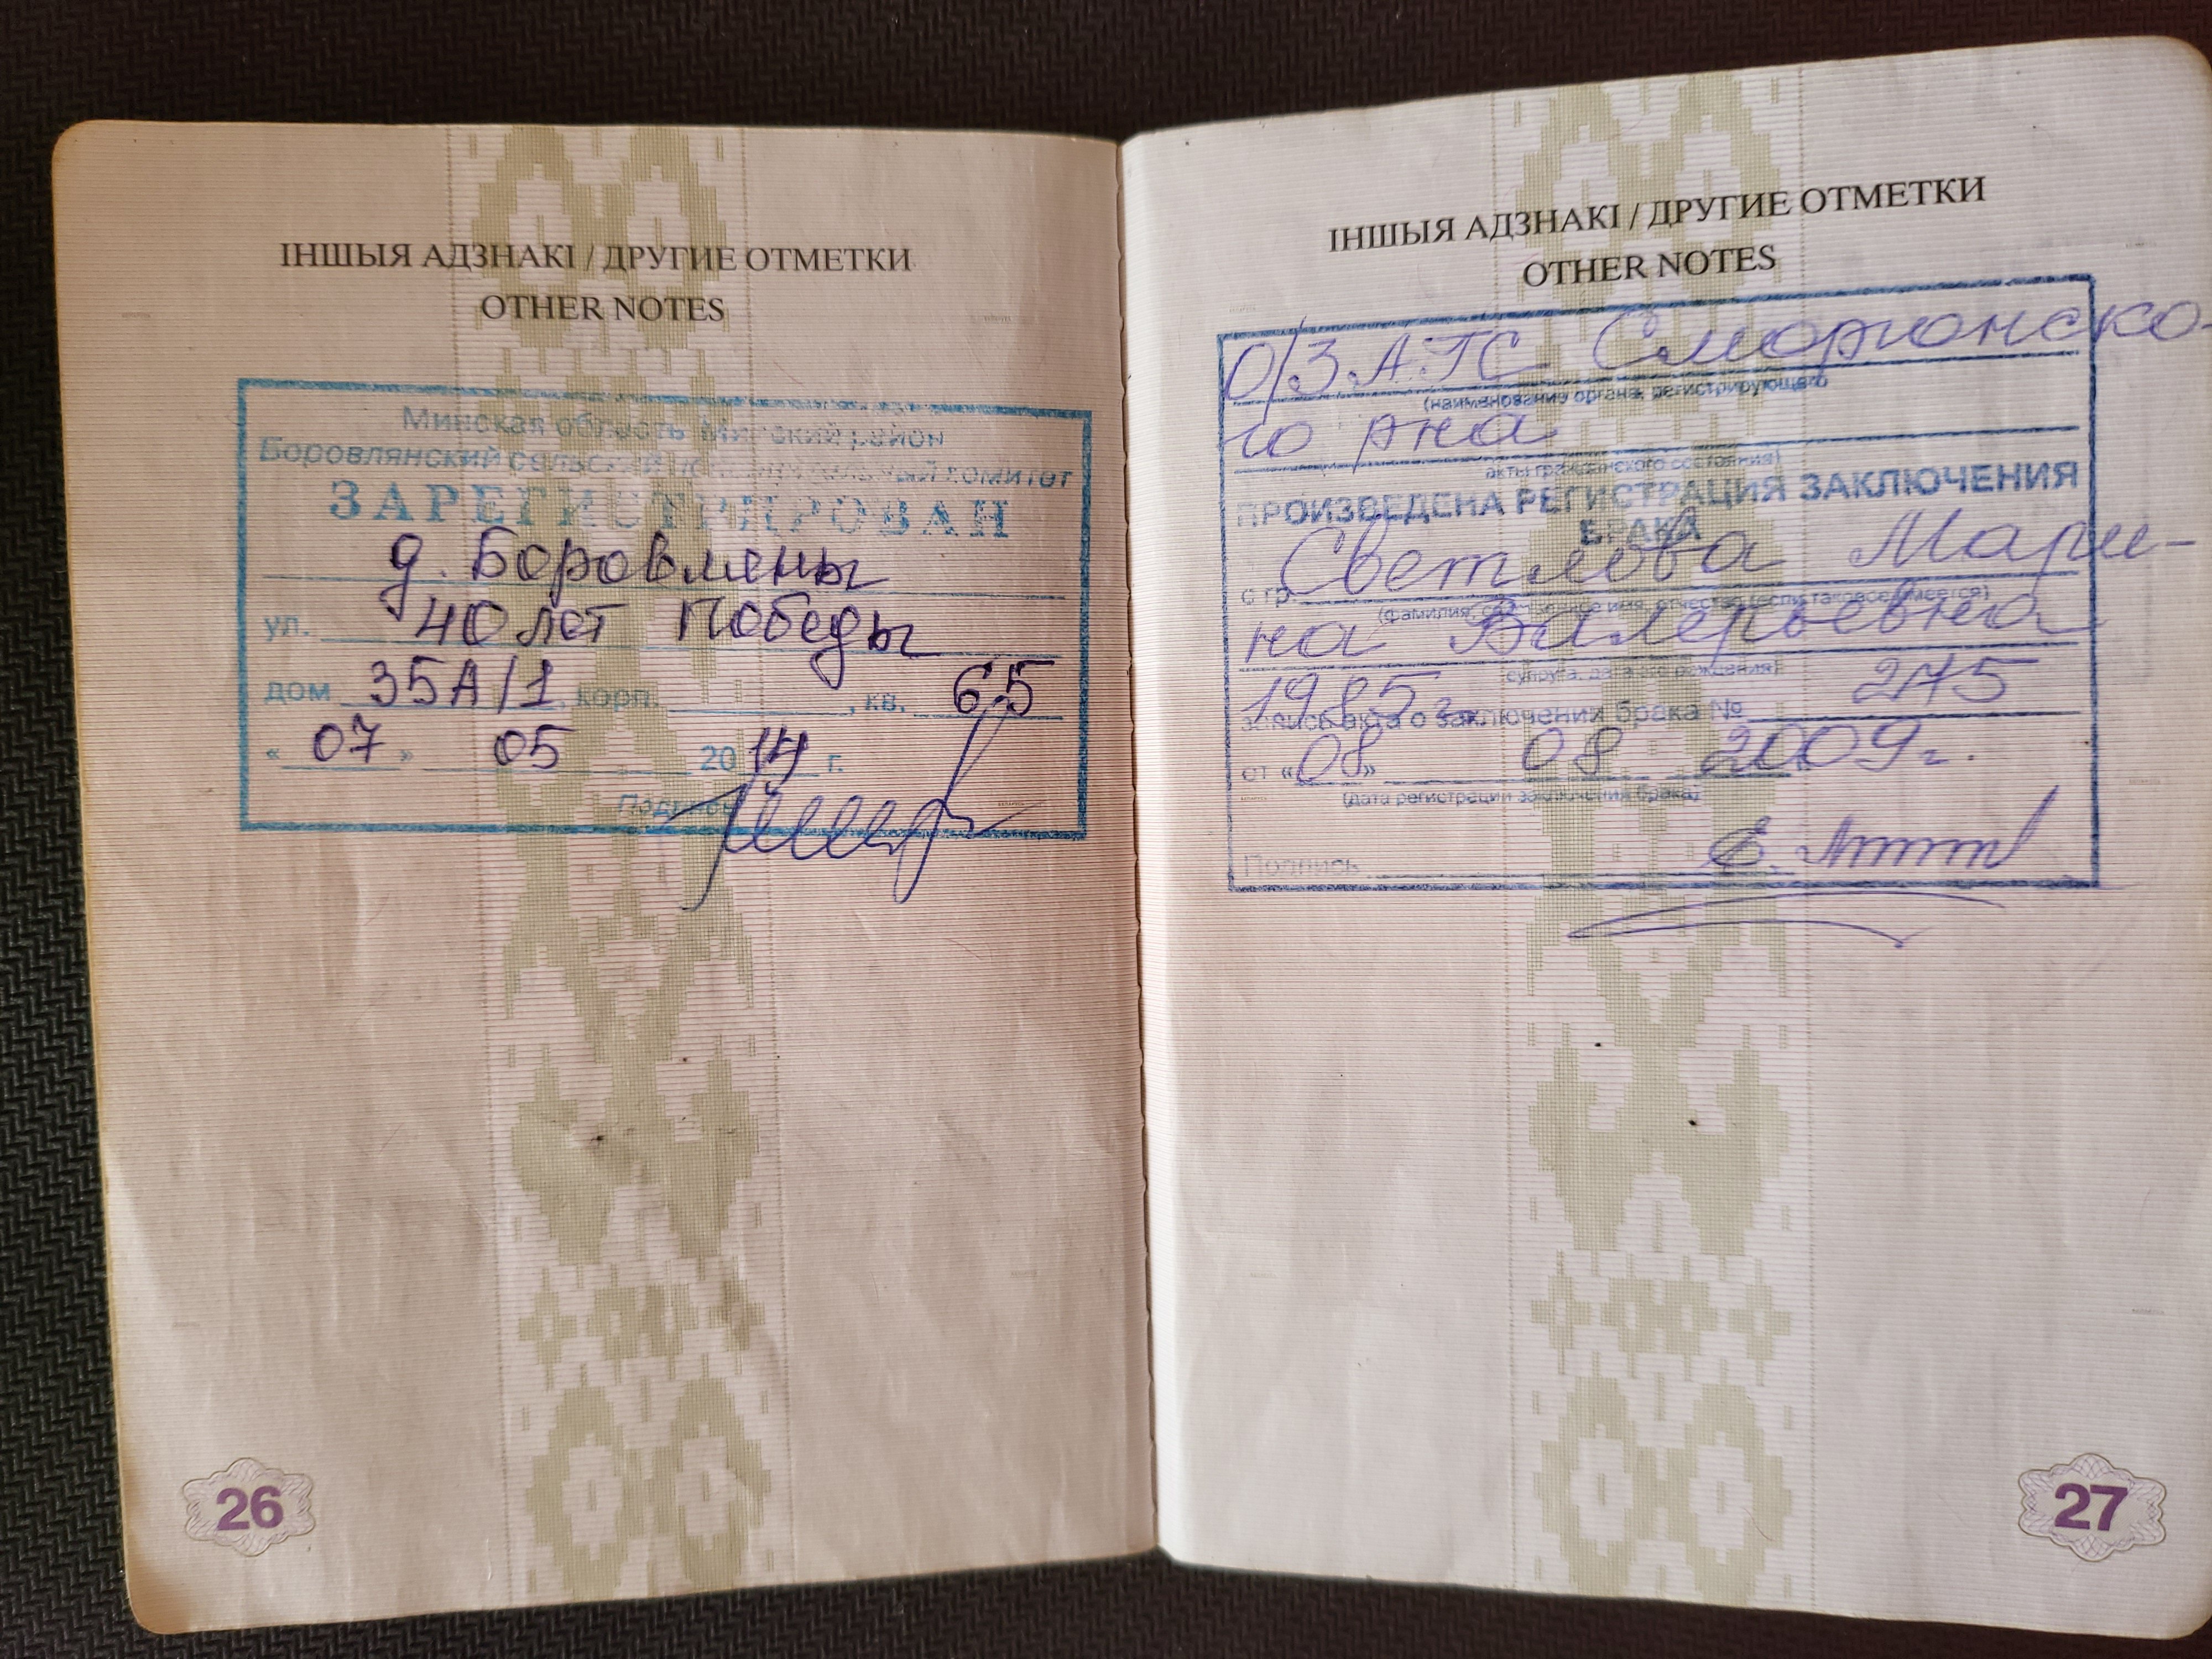 ІНШЫЯ АДЗНАКІ / ДРУГИЕ ОТМЕТКИ
OTHER NOTES
Минская область Минский район
Боровлянский сельский исполнительный комитет
ЗАРЕГИСТРИРОВАН
д. Боровляны
ул. 40 лет Победы
дом 35А/1, корп. , кв. 65
«07» 05 2014 г.
Подпись
26
ІНШЫЯ АДЗНАКІ / ДРУГИЕ ОТМЕТКИ
OTHER NOTES
О/ЗАГС Сморгонско-
(наименование органа, регистрирующего
го р-на
акты гражданского состояния)
ПРОИЗВЕДЕНА РЕГИСТРАЦИЯ ЗАКЛЮЧЕНИЯ
БРАКА
с гр. Светлова Мари-
(фамилия, собственное имя, отчество (если таковое имеется)
на Валерьевна
супруга, дата рождения)
1985 г.
запись акта о заключении брака № 275
от «08» 08 2009 г.
(дата регистрации заключения брака)
Подпись
27